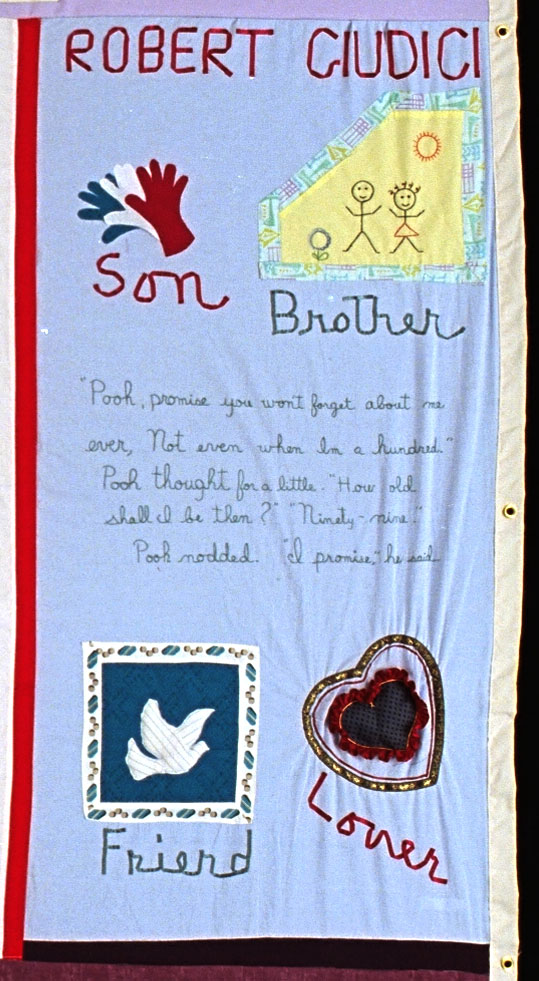 ROBERT GIUDICI
Son
Brother
"Pooh, promise you won't forget about me
ever, Not even when Im a hundred."
Pooh thought for a little. "How old
shall I be then?" "Ninety-nine."
Pooh nodded. "I promise," he said
Friend
Lover